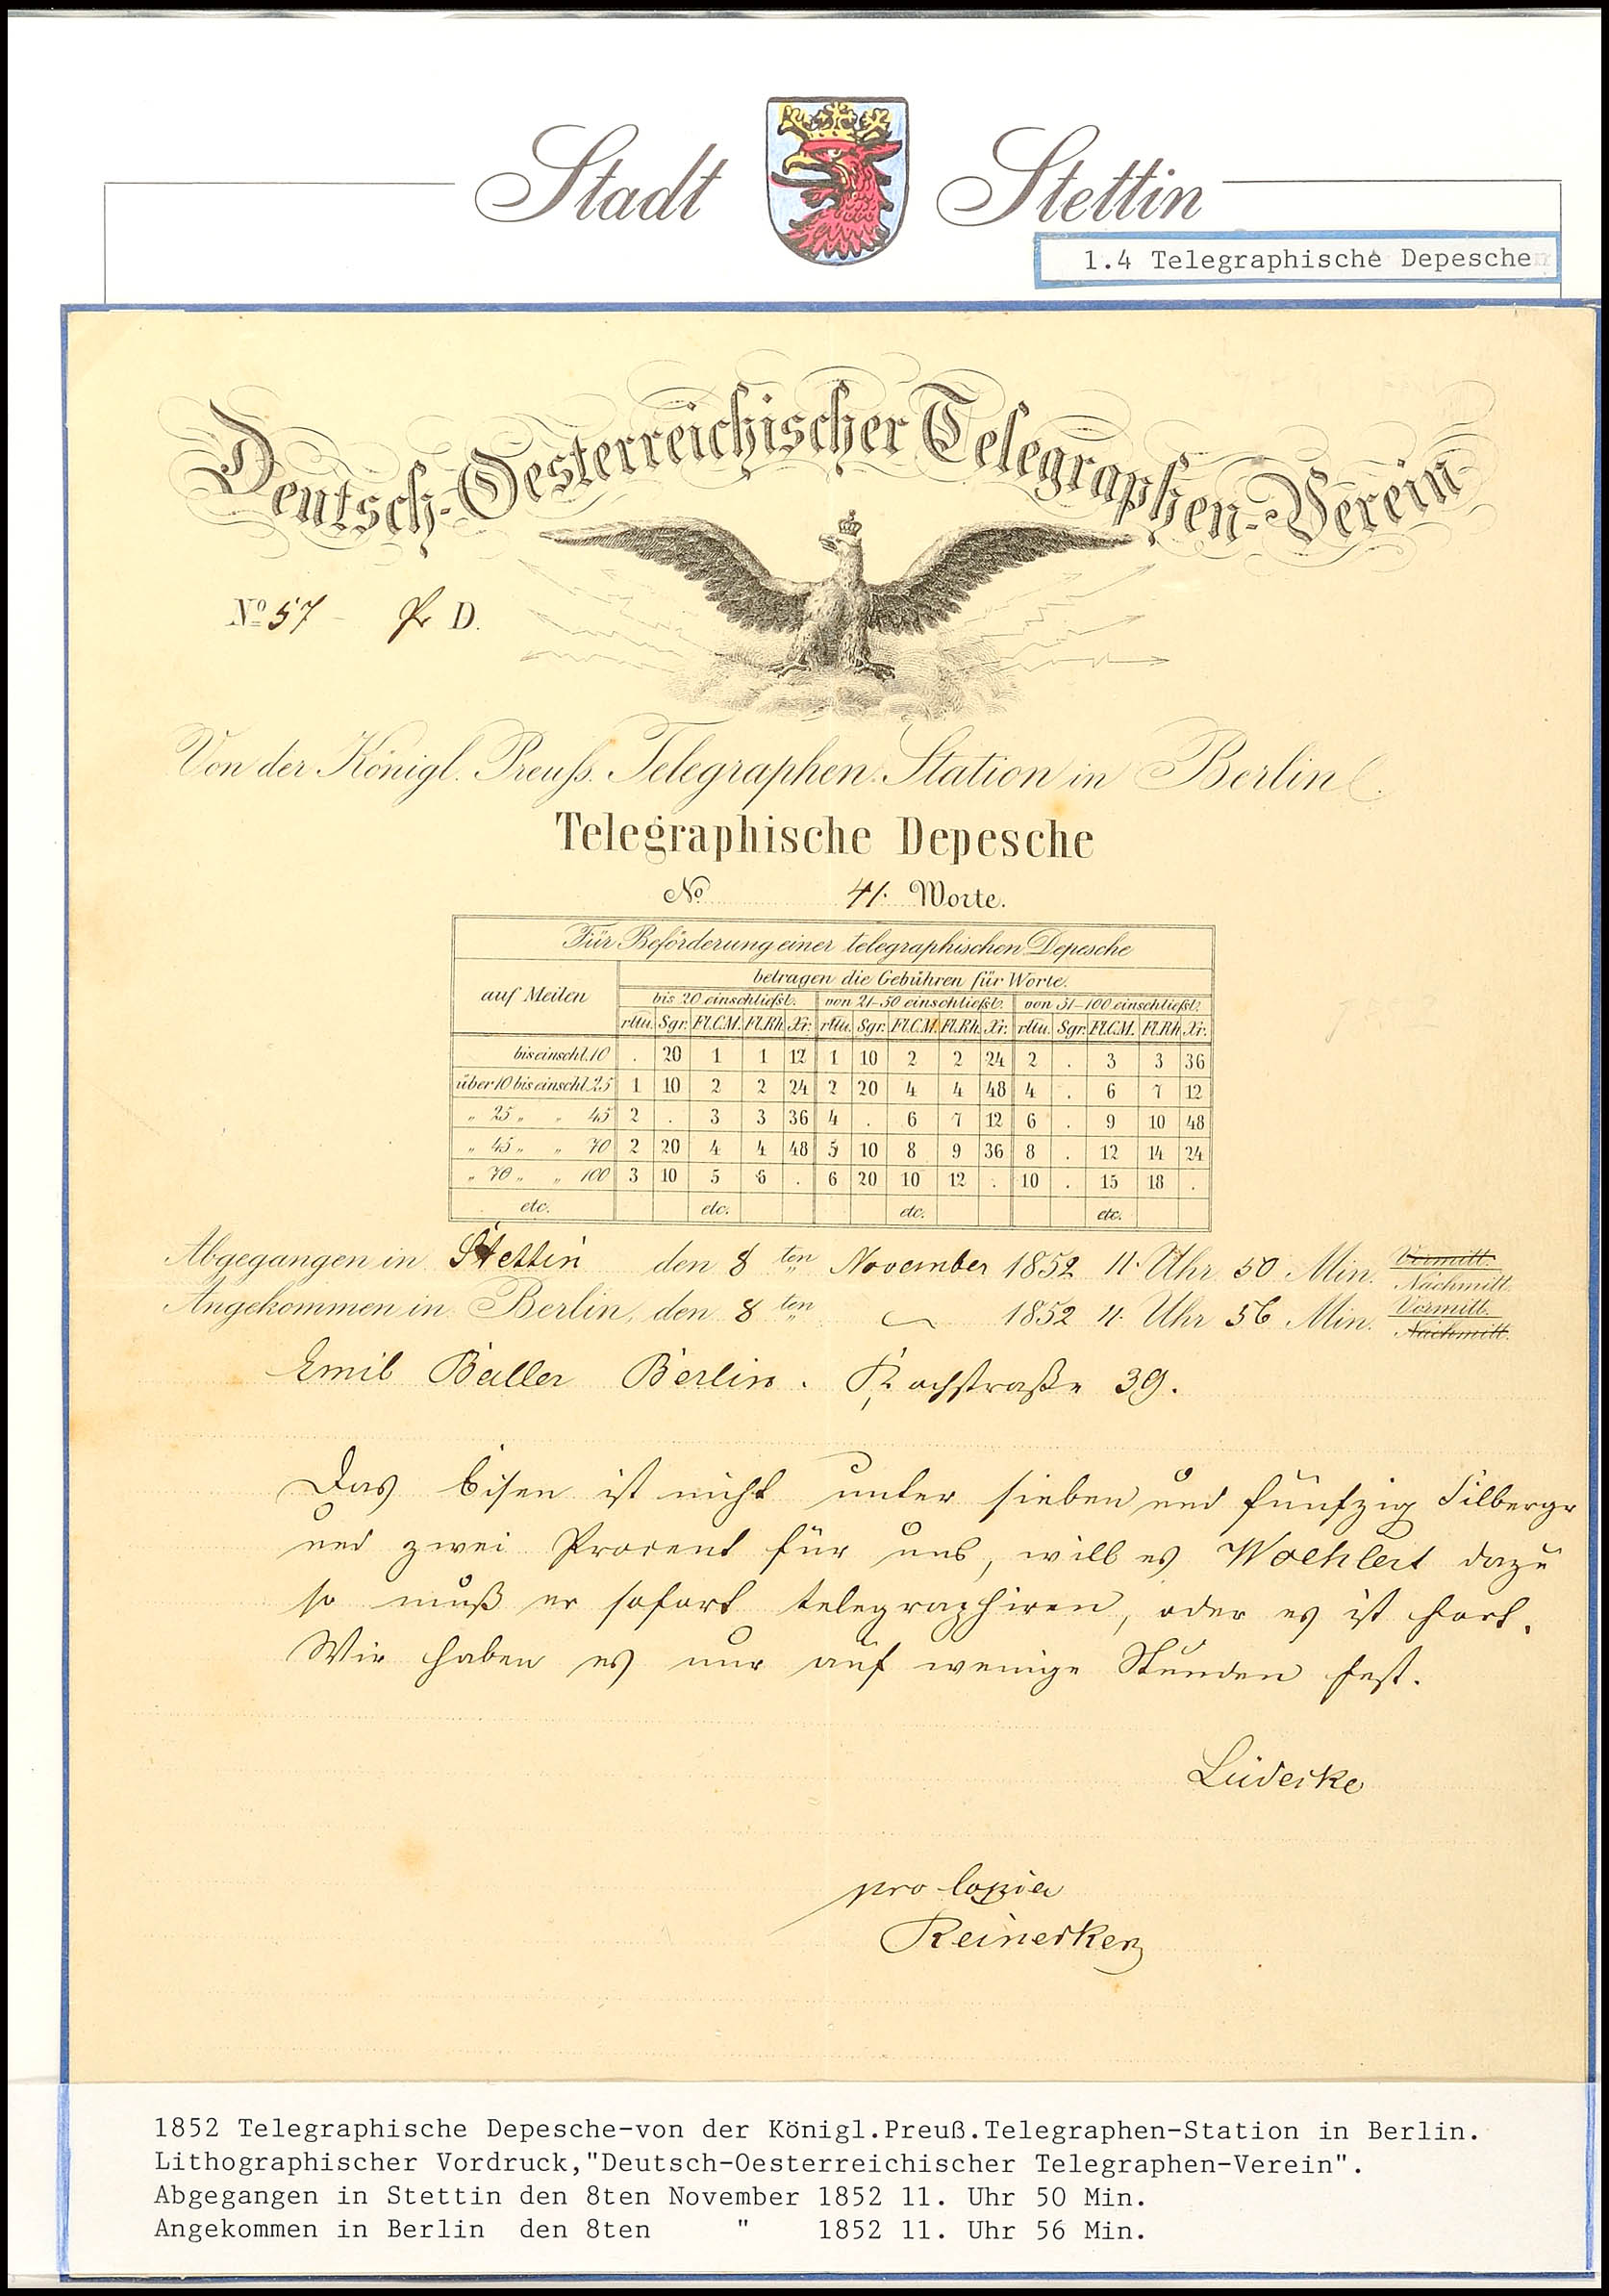 Stadt Stettin
1.4 Telegraphische Depesche
Deutsch-Oesterreichischer Telegraphen-Verein
No 57 Pr D.
Von der Königl. Preuß. Telegraphen-Station in Berlin.
Telegraphische Depesche
No 41. Worte.
Für Beförderung einer telegraphischen Depesche
auf Meilen betragen die Gebühren für Worte.
bis 20 einschließl. von 21-50 einschließl. von 51-100 einschließl.
rthl. Sgr. Fl.C.M. Fl.Rh. Xr. rthl. Sgr. Fl.C.M. Fl.Rh. Xr. rthl. Sgr. Fl.C.M. Fl.Rh. Xr.
bis einschl. 10 . 20 1 1 12 1 10 2 2 24 2 . 3 3 36
über 10 bis einschl. 25 1 10 2 2 24 2 20 4 4 48 4 . 6 7 12
" 25 " " 45 2 . 3 3 36 4 . 6 7 12 6 . 9 10 48
" 45 " " 70 2 20 4 4 48 5 10 8 9 36 8 . 12 14 24
" 70 " " 100 3 10 5 6 . 6 20 10 12 . 10 . 15 18 .
etc. etc. etc. etc.
Abgegangen in Stettin den 8 ten November 1852 11. Uhr 50 Min. Vormitt. Nachmitt.
Angekommen in Berlin, den 8 ten " 1852 11. Uhr 56 Min. Vormitt. Nachmitt.
Emil Baller Berlin. Kochstraße 39.
Das Eisen ist nicht unter sieben und fünfzig Silbergr
und zwei Procent für uns, will es Woehlert dazu
so muß er sofort telegraphiren, oder es ist fort.
Wir haben es nur auf wenige Stunden fest.
Lüdecke
pro copia
Reinecken
1852 Telegraphische Depesche-von der Königl.Preuß.Telegraphen-Station in Berlin.
Lithographischer Vordruck,"Deutsch-Oesterreichischer Telegraphen-Verein".
Abgegangen in Stettin den 8ten November 1852 11. Uhr 50 Min.
Angekommen in Berlin den 8ten " 1852 11. Uhr 56 Min.